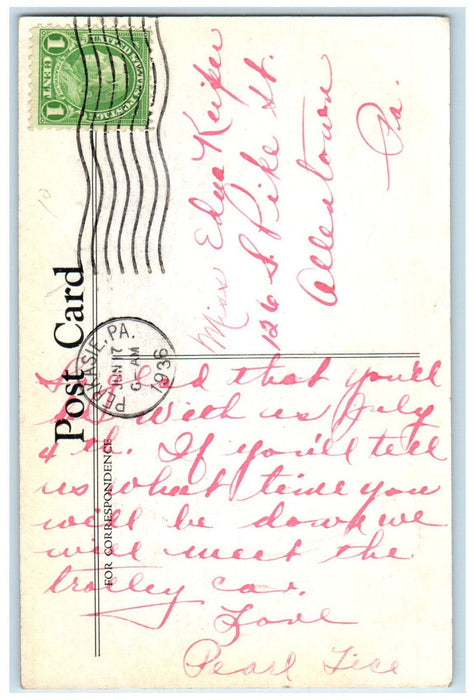 1 CENT 1
UNITED STATES POSTAGE
Post Card
FOR CORRESPONDENCE
PERKASIE, PA.
JUN 17
6-AM
1936
Miss Edna Keifer
126 S. Pike St.
Allentown
Pa.
So glad that you'll
be with us July
4 th. If you'll tell
us what time you
will be down we
will meet the
trolley car.
Love
Pearl Tice